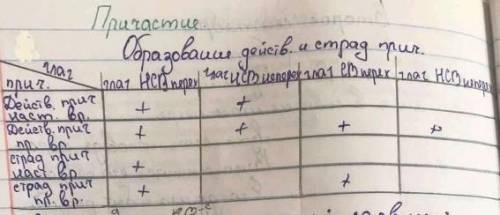 Причастие
Образование действ. и страд прич.
глаг
прич. глаг НСВ перех глаг НСВ неперех глаг СВ перех глаг НСВ неперех
Действ. прич + +
наст. вр.
Действ. прич + + + +
пр. вр.
страд прич +
наст вр.
страд прич + +
пр. вр.